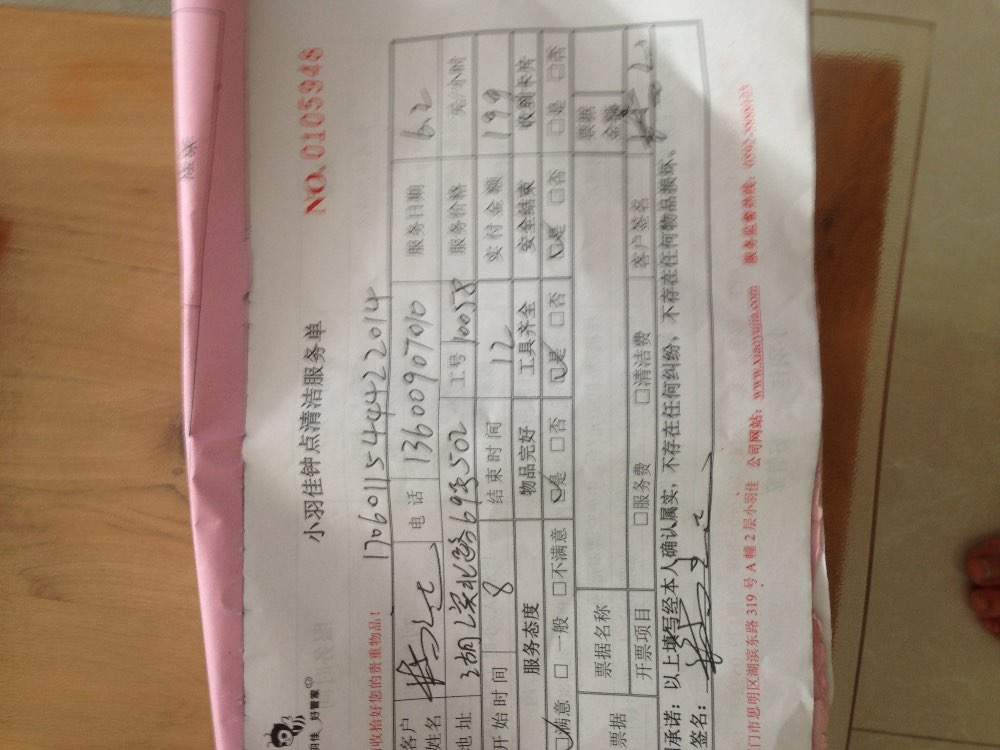 好管家
小羽佳钟点清洁服务单
NO. 0105948
收拾好您的贵重物品!
1706011544422014
客户姓名 电话 13600907010 服务日期 6.2
地址 湖滨北路69号502 工号 10058 服务价格 元/小时
开始时间 8 结束时间 12 实付金额 199
服务态度 物品完好 工具齐全 安全结束 收到卡片
☑满意 □一般 □不满意 ☑是 □否 ☑是 □否 ☑是 □否 □是 □否
票据 票据名称 票据金额
开票项目 □服务费 □清洁费 客户签名
承诺:以上填写经本人确认属实,不存在任何纠纷,不存在任何物品损坏。
签名:
门市思明区湖滨东路 319 号 A 幢 2 层小羽佳 公司网站:www.xiaoyujia.com 服务监督热线: